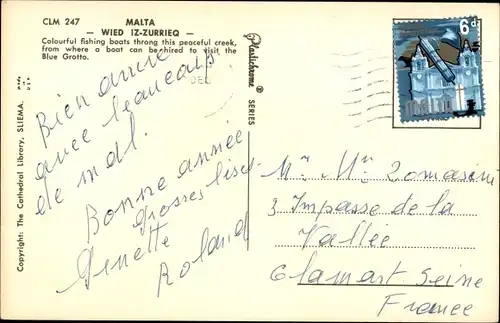 CLM 247
MALTA
— WIED IZ-ZURRIEQ —
Colourful fishing boats throng this peaceful creek,
from where a boat can be hired to visit the
Blue Grotto.
Bien
avec beaucoup
de mal.
Bonne année
Grosses bises
Ginette
Roland
Copyright: The Cathedral Library, SLIEMA.
Plastichrome ® SERIES
DEC
6d
Mr Mme Lomasini
3 Impasse de la
Vallée
Clamart Seine
France